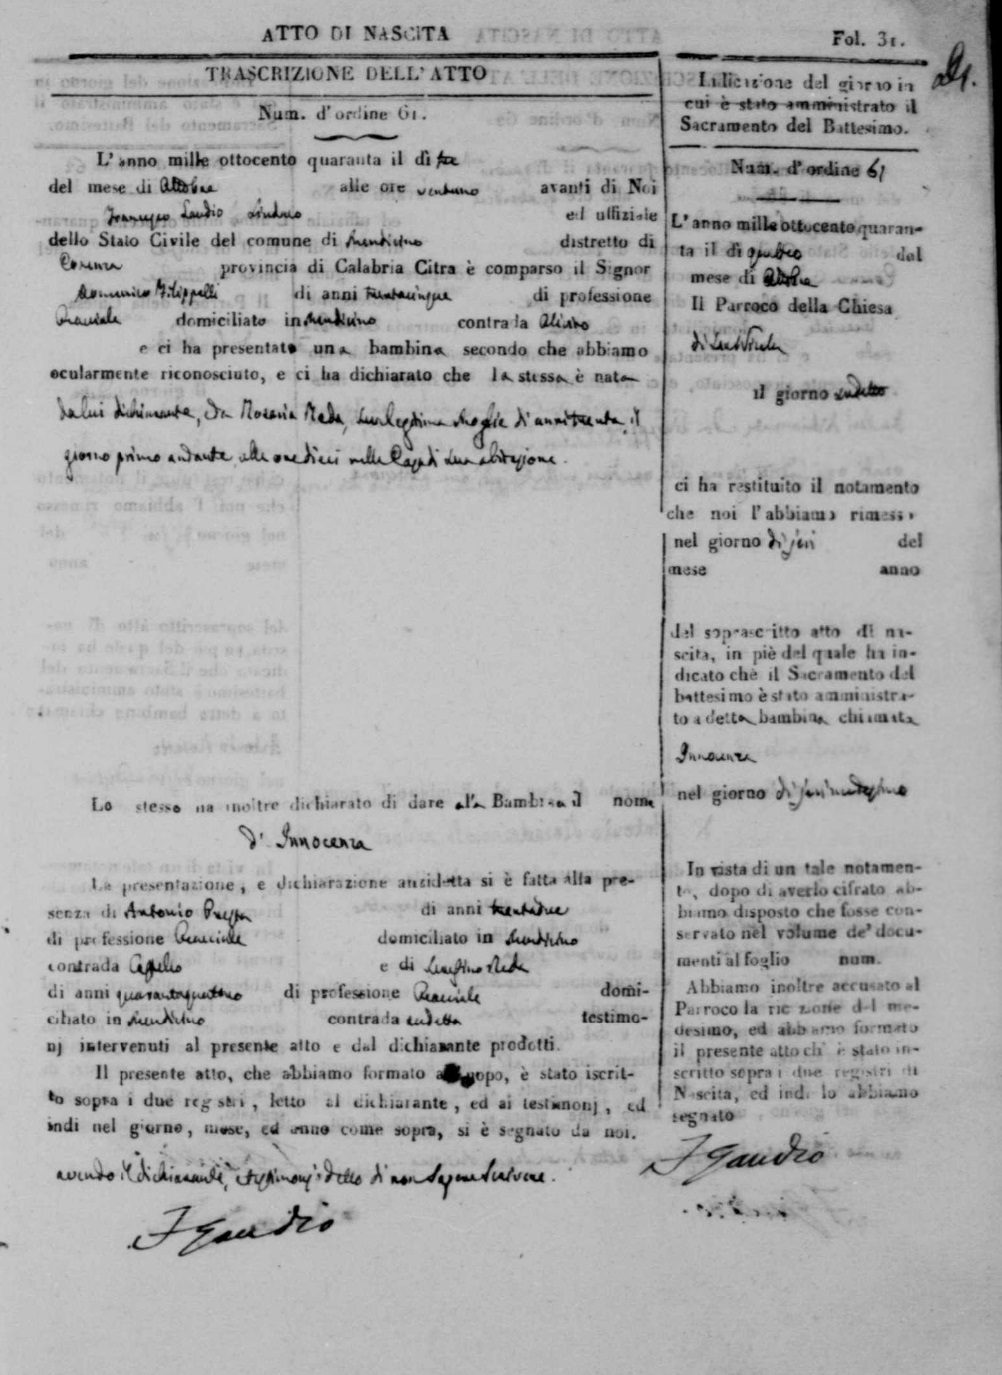 ATTO DI NASCITA
Fol. 31.
TRASCRIZIONE DELL'ATTO
Num. d'ordine 61.
L'anno mille ottocento quaranta il dì tre
del mese di Ottobre alle ore ventuno avanti di Noi
Francesco Gaudio Sindaco ed uffiziale
dello Stato Civile del comune di Mendicino distretto di
Cosenza provincia di Calabria Citra è comparso il Signor
Domenico Filippelli di anni trentacinque di professione
Bracciale domiciliato in Mendicino contrada
e ci ha presentato una bambina secondo che abbiamo
ocularmente riconosciuto, e ci ha dichiarato che la stessa è nata
da lui dichiarante, e da Rosaria Reda, sua legittima Moglie di anni trenta, il
giorno primo andante, alle ore dieci nella Casa di sua abitazione.
Lo stesso ha inoltre dichiarato di dare alla Bambina il nome
d' Innocenza
La presentazione, e dichiarazione anzidetta si è fatta alla pre-
senza di Antonio di anni trentadue
di professione Bracciale domiciliato in Mendicino
contrada e di Serafino Reda
di anni quarantaquattro di professione Bracciale domi-
ciliato in Mendicino contrada sudetta testimo-
nj intervenuti al presente atto e dal dichiarante prodotti.
Il presente atto, che abbiamo formato all'uopo, è stato iscrit-
to sopra i due registri, letto al dichiarante, ed ai testimonj, ed
indi nel giorno, mese, ed anno come sopra, si è segnato da noi.
avendo il dichiarante, e testimonj detto di non sapere scrivere.
F Gaudio
Indicazione del giorno in
cui è stato amministrato il
Sacramento del Battesimo.
Num. d'ordine 61
L'anno mille ottocento quaran-
ta il dì quattro del
mese di Ottobre
Il Parroco della Chiesa
di San Nicola
il giorno sudetto
ci ha restituito il notamento
che noi l'abbiamo rimesso
nel giorno di jeri del
mese anno
del soprascritto atto di na-
scita, in piè del quale ha in-
dicato che il Sacramento del
battesimo è stato amministra-
to a detta bambina chiamata
Innocenza
nel giorno di jeri medesimo
In vista di un tale notamen-
to, dopo di averlo cifrato ab-
biamo disposto che fosse con-
servato nel volume de' docu-
menti al foglio num.
Abbiamo inoltre accusato al
Parroco la ricezione del me-
desimo, ed abbiamo formato
il presente atto ch' è stato in-
scritto sopra i due registri di
Nascita, ed indi lo abbiamo
segnato
F Gaudio